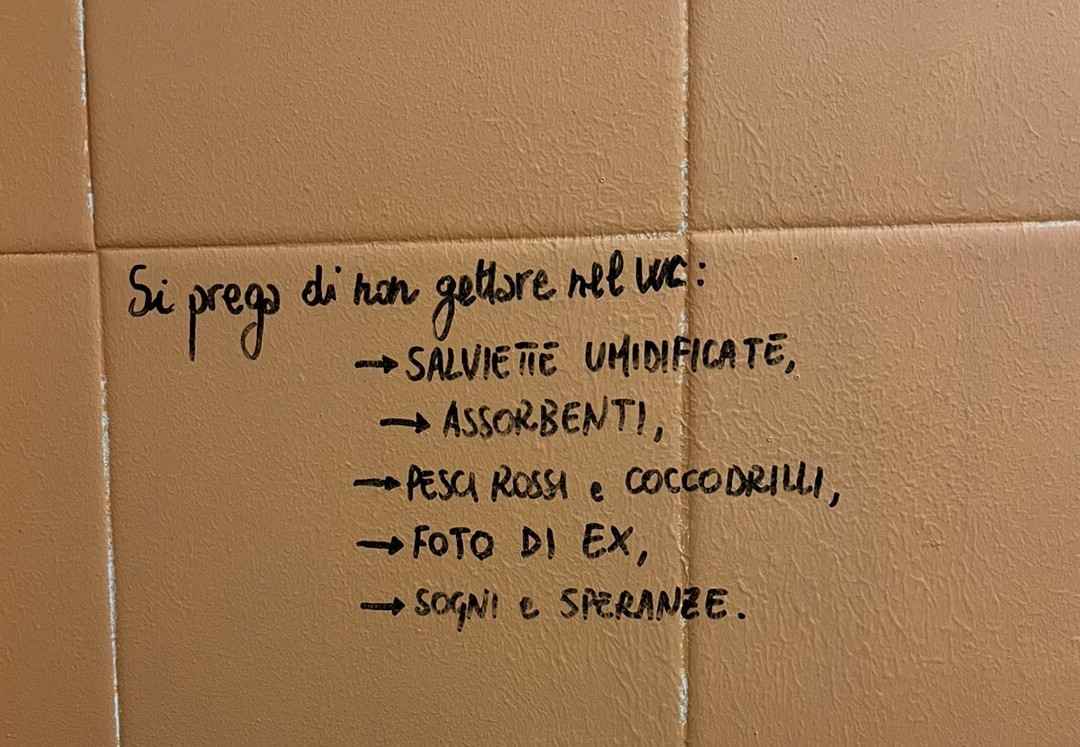 Si prega di non gettare nel WC:
→ SALVIETTE UMIDIFICATE,
→ ASSORBENTI,
→ PESCI ROSSI e COCCODRILLI,
→ FOTO DI EX,
→ SOGNI e SPERANZE.